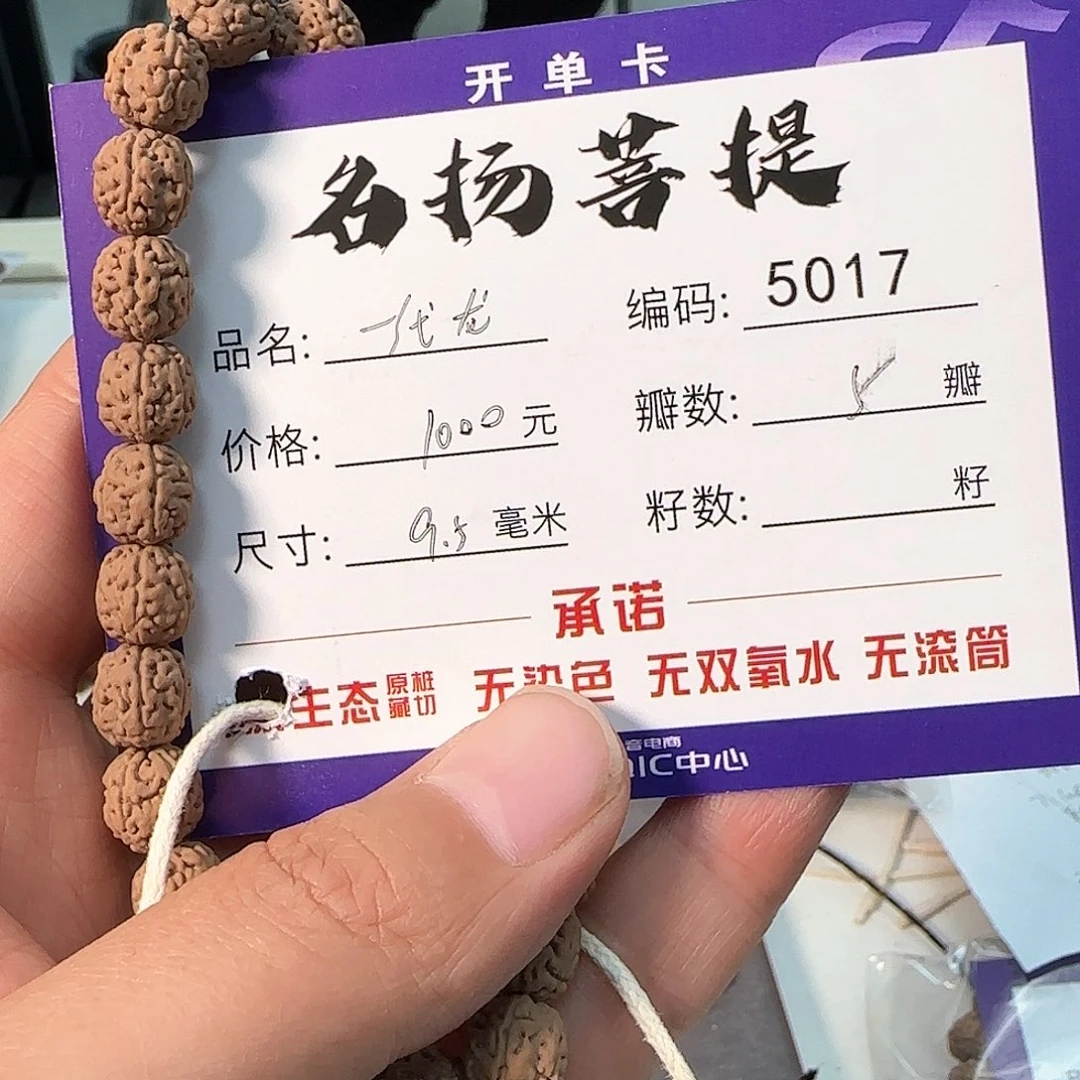 开单卡
名扬菩提
品名: 一代龙 编码: 5017
价格: 1000 元 瓣数: 5 瓣
尺寸: 9.5 毫米 籽数: 籽
承诺
生态 原桩藏切 无染色 无双氧水 无滚筒
音电商
QIC中心